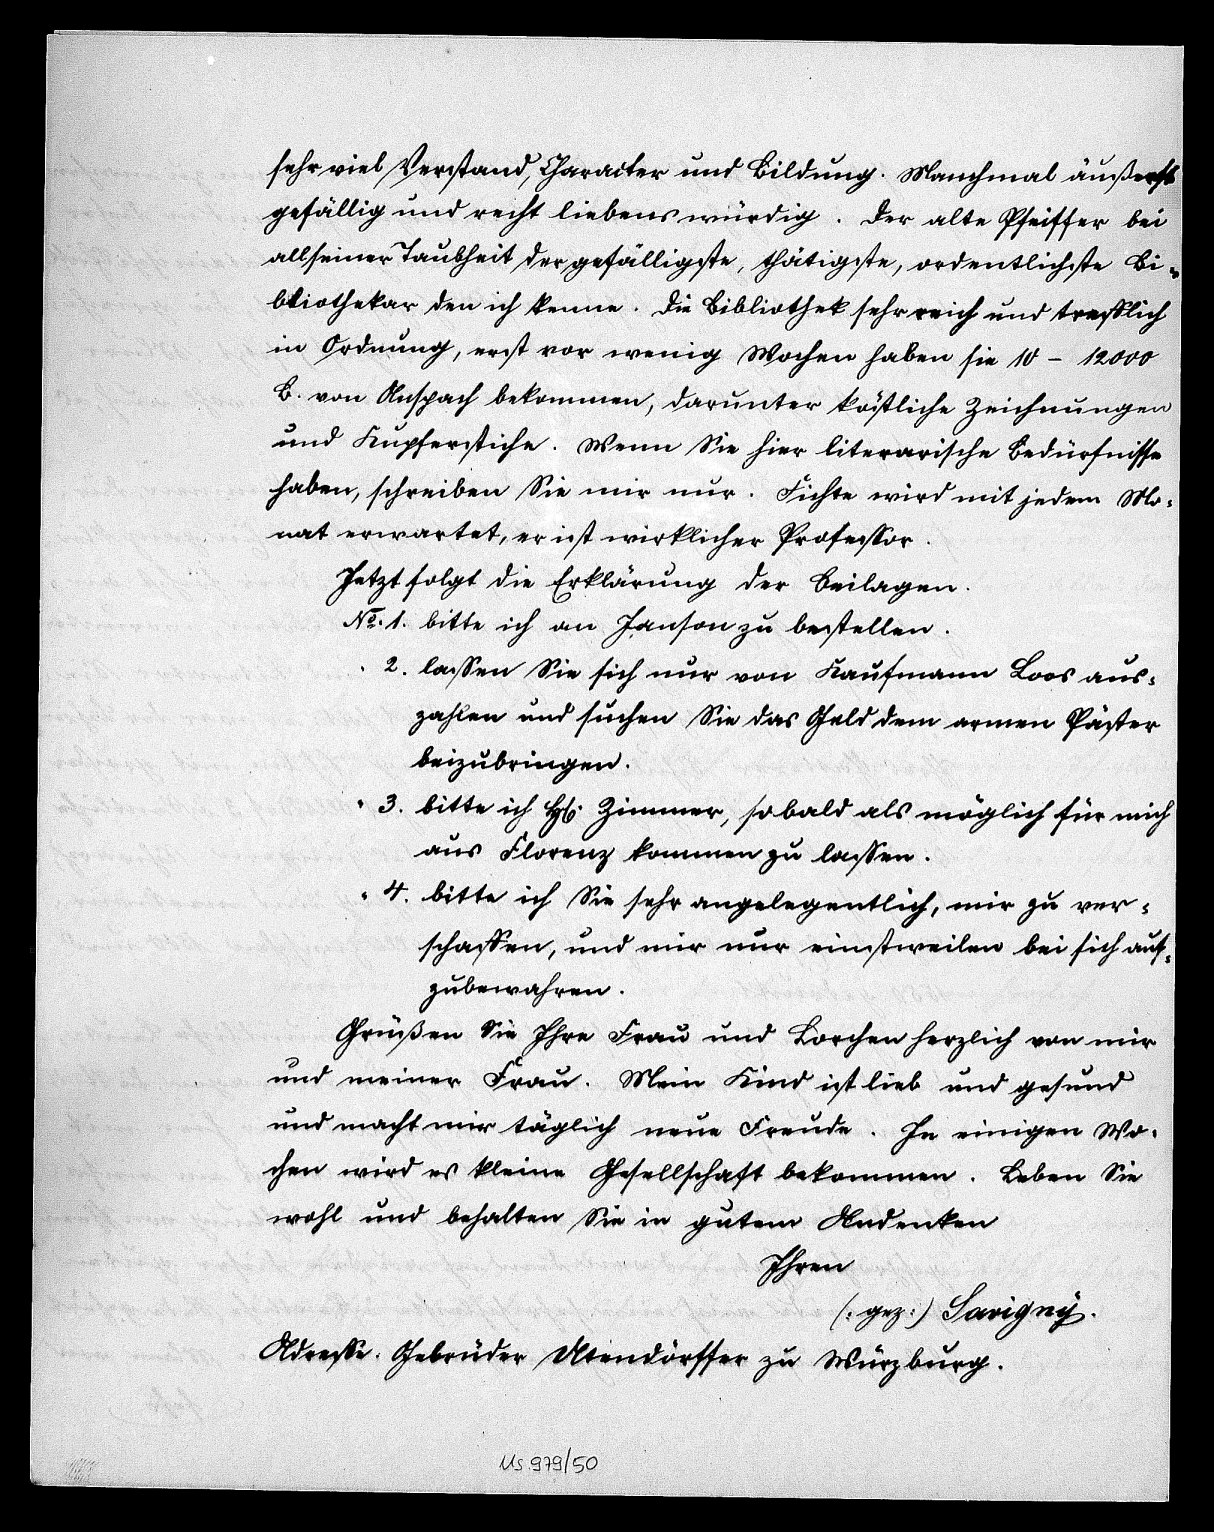 sehr viel Verstand, Character und Bildung. Manchmal äußerst
gefällig und recht liebenswürdig. Der alte Pfeiffer bei
all seiner Taubheit der gefälligste, thätigste, ordentlichste Bi-
bliothekar den ich kenne. Die Bibliothek sehr reich und trefflich
in Ordnung, erst vor wenig Wochen haben sie 10 – 12000
B. von Anspach bekommen, darunter köstliche Zeichnungen
und Kupferstiche. Wenn Sie hier literarische Bedürfnisse
haben, schreiben Sie mir nur. Fichte wird mit jedem Mo-
nat erwartet, er ist wirklicher Professor.
Jetzt folgt die Erklärung der Beilagen.
No. 1. bitte ich an Janson zu bestellen.
" 2. lassen Sie sich nur von Kaufmann Loos aus-
zahlen und suchen Sie das Geld dem armen Päster
beizubringen.
" 3. bitte ich Zimmer, sobald als möglich für mich
aus Florenz kommen zu lassen.
" 4. bitte ich Sie sehr angelegentlich, mir zu ver-
schaffen, und mir nur einstweilen bei sich auf-
zubewahren.
Grüßen Sie Ihre Frau und Lorchen herzlich von mir
und meiner Frau. Mein Kind ist lieb und gesund
und macht mir täglich neue Freude. In einigen Wo-
chen wird es kleine Gesellschaft bekommen. Leben Sie
wohl und behalten Sie in gutem Andenken
Ihren
(: gez :) Savigny.
Adresse. Gebrüder Utendörffer zu Würzburg.
Ms 979/50